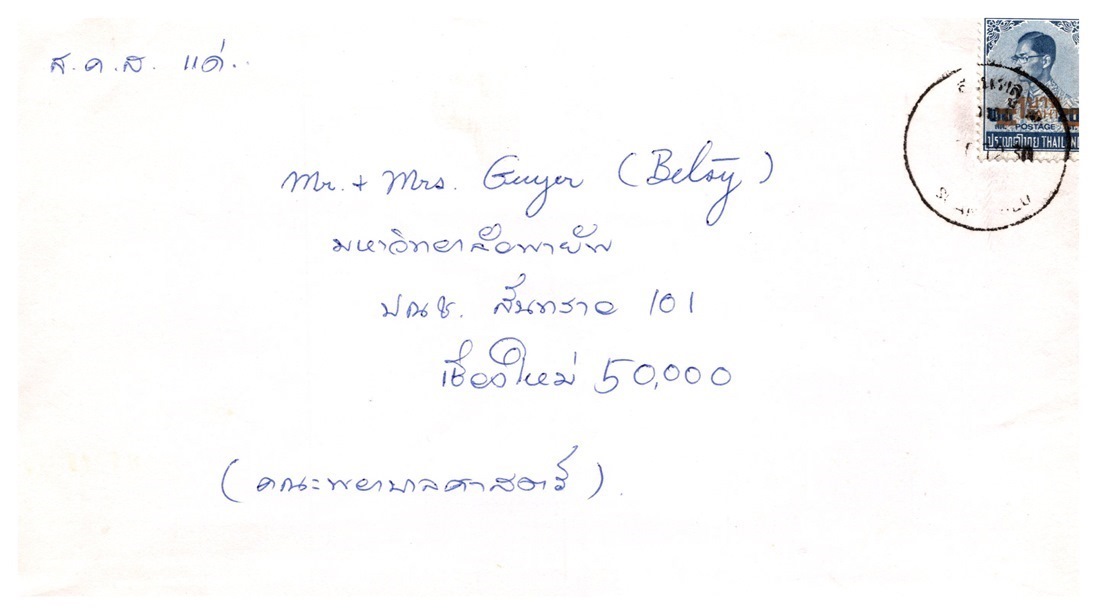 ส.ค.ส. แด่..
Mr. + Mrs. Guyer (Betsy)
มหาวิทยาลัยพายัพ
ปณช. สันทราย 101
เชียงใหม่ 50,000
(คณะพยาบาลศาสตร์)
POSTAGE
ประเทศไทย THAILAND